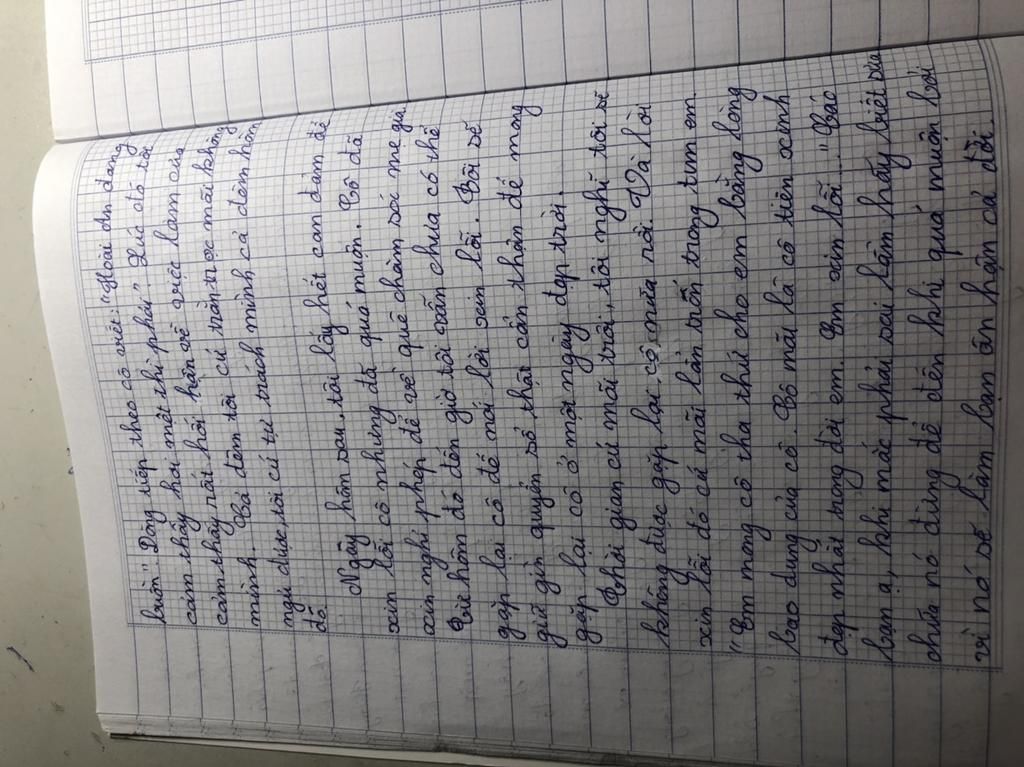 buồn". Dòng tiếp theo cô viết: "Hoài Ân đang
cảm thấy hơi mệt thì phải". Lúc đó tôi
cảm thấy rất hối hận về việc làm của
mình. Cả đêm tôi cứ trằn trọc mãi không
ngủ được, tôi cứ tự trách mình cả đêm hôm
đó.
Ngày hôm sau, tôi lấy hết can đảm để
xin lỗi cô nhưng đã quá muộn. Cô đã
xin nghỉ phép để về quê chăm sóc mẹ già.
Từ hôm đó đến giờ tôi vẫn chưa có thể
gặp lại cô để nói lời xin lỗi. Tôi sẽ
giữ gìn quyển sổ thật cẩn thận để mong
gặp lại cô ở một ngày đẹp trời.
Thời gian cứ mãi trôi, tôi nghĩ tôi sẽ
không được gặp lại cô nữa rồi. Và lời
xin lỗi đó cứ mãi lẩn trốn trong tim em.
"Em mong cô tha thứ cho em bằng lòng
bao dung của cô. Cô mãi là cô tiên xinh
đẹp nhất trong đời em. Em xin lỗi...." Các
bạn ạ, khi mắc phải sai lầm hãy biết sửa
chữa nó đừng để đến khi quá muộn bởi
vì nó sẽ làm bạn ân hận cả đời.